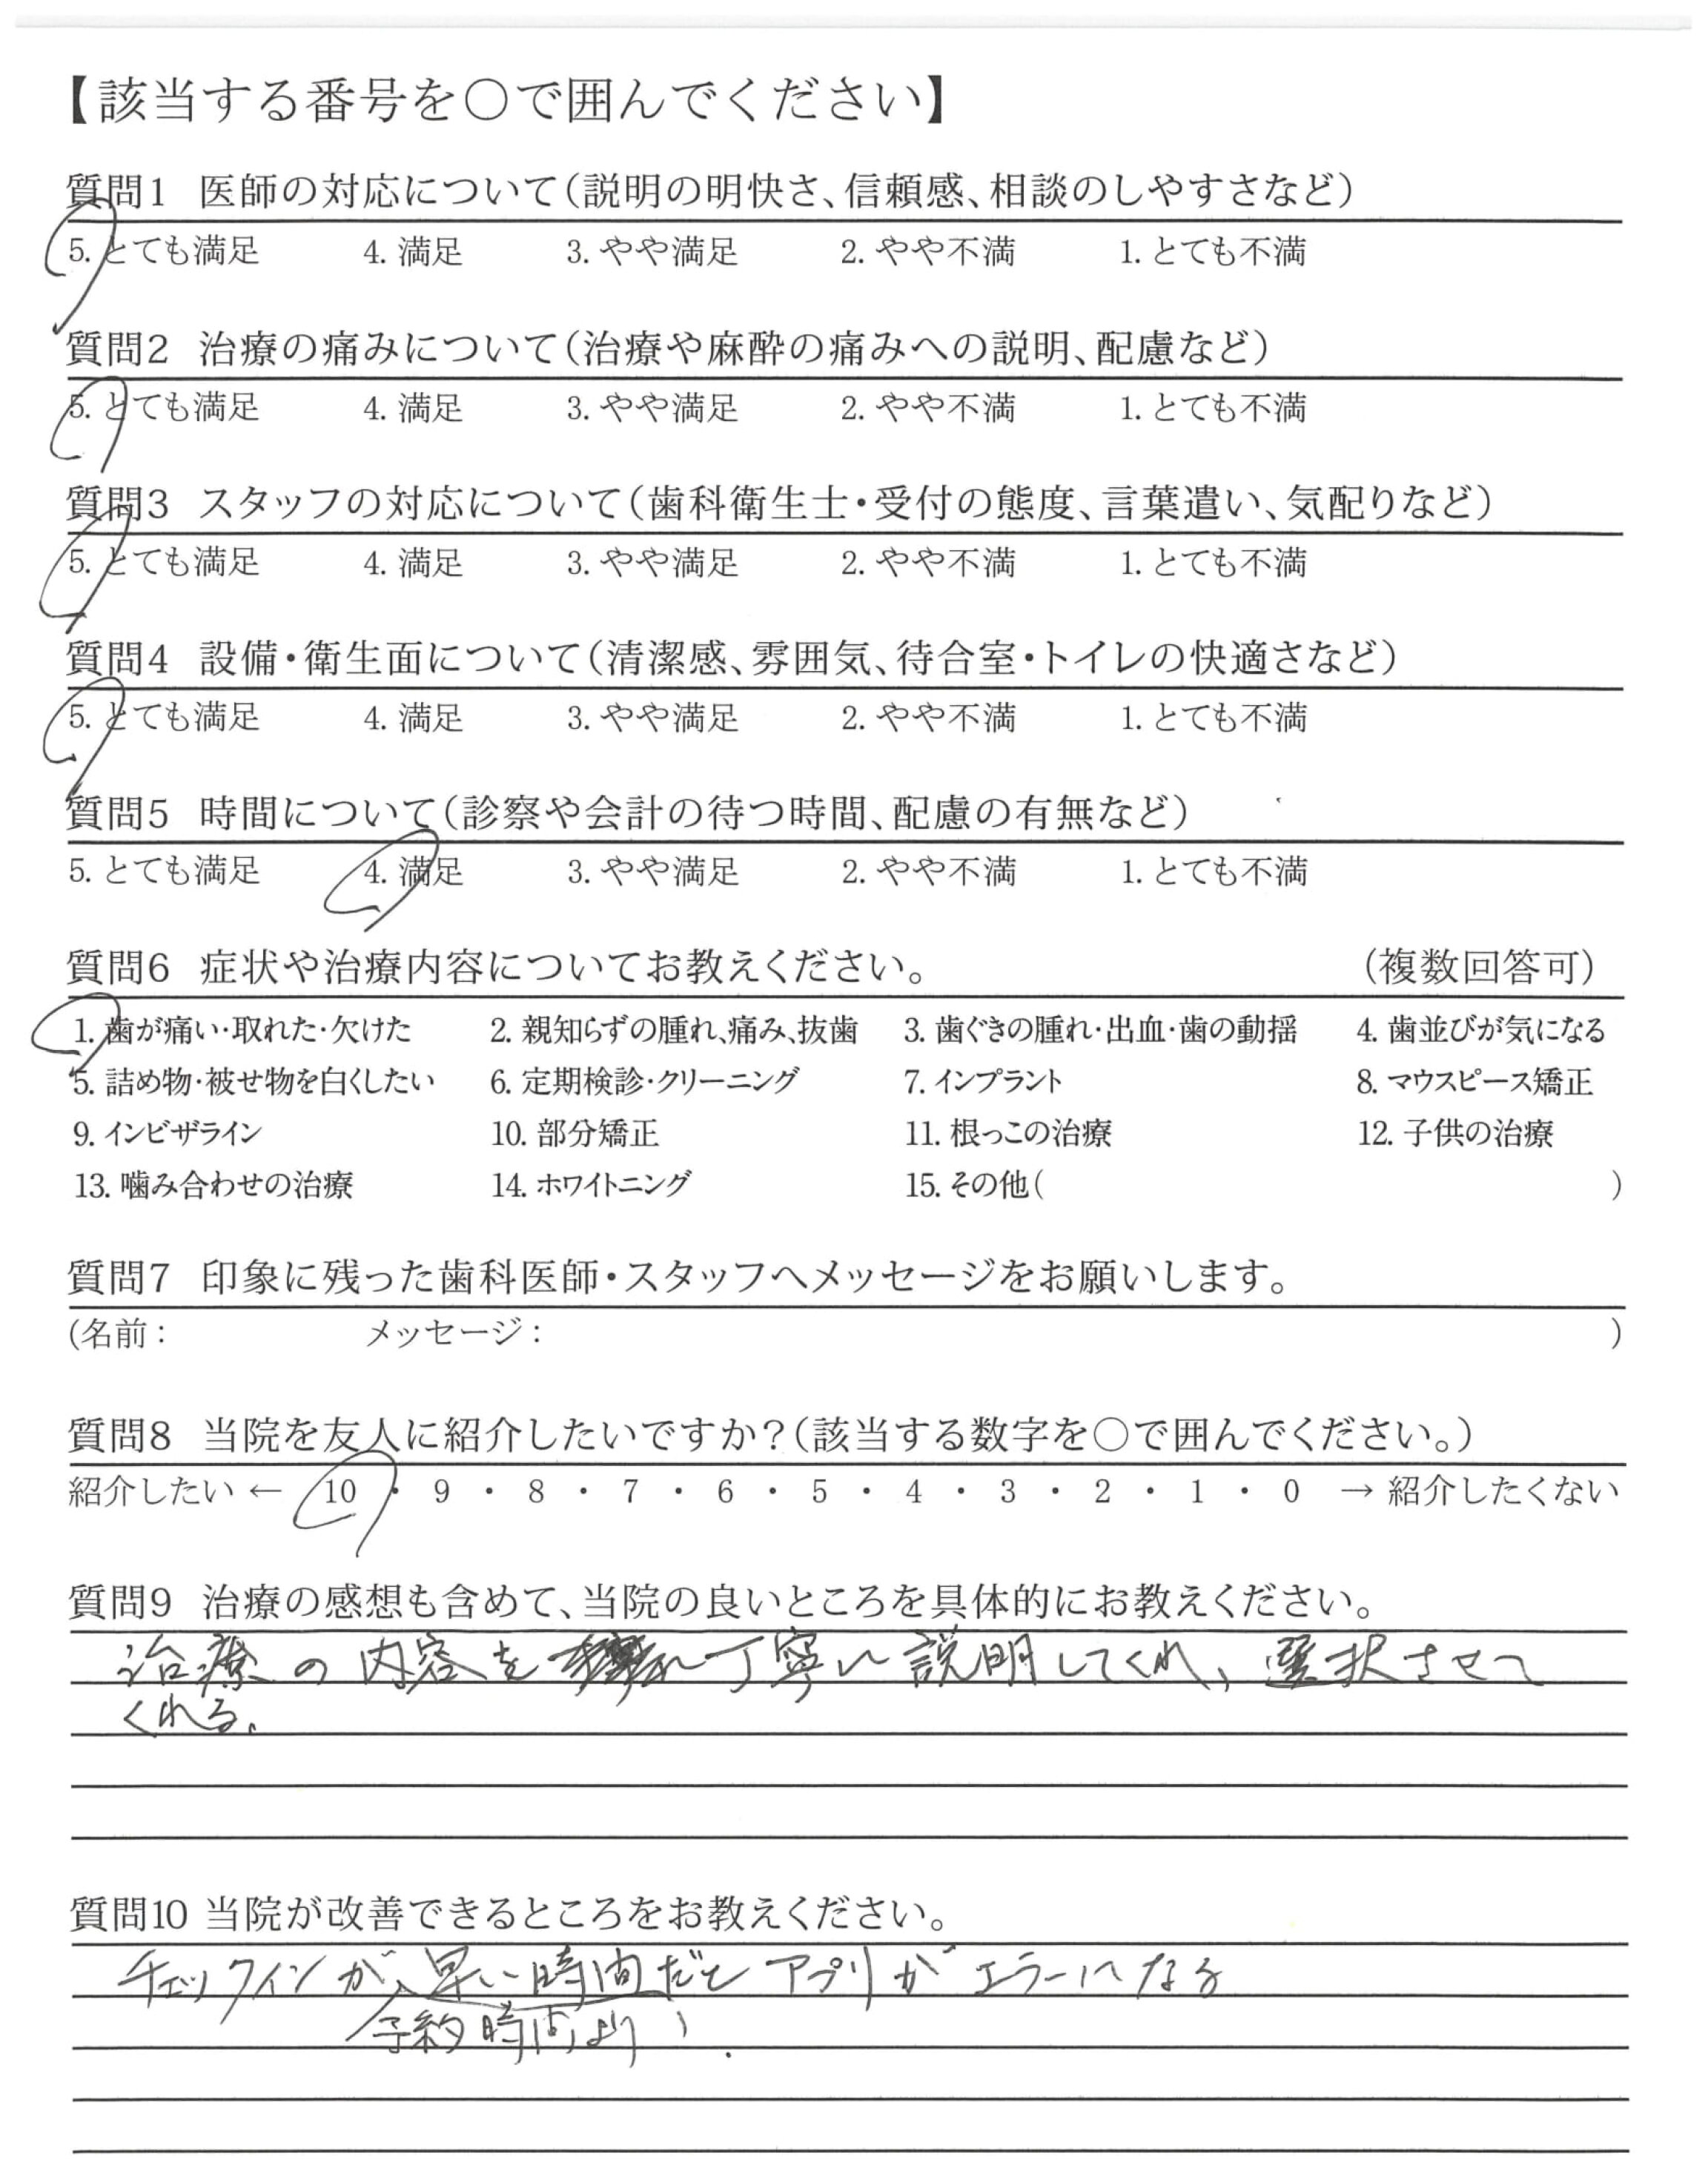 【該当する番号を○で囲んでください】
質問1 医師の対応について（説明の明快さ、信頼感、相談のしやすさなど）
5. とても満足 4. 満足 3. やや満足 2. やや不満 1. とても不満
質問2 治療の痛みについて（治療や麻酔の痛みへの説明、配慮など）
5. とても満足 4. 満足 3. やや満足 2. やや不満 1. とても不満
質問3 スタッフの対応について（歯科衛生士・受付の態度、言葉遣い、気配りなど）
5. とても満足 4. 満足 3. やや満足 2. やや不満 1. とても不満
質問4 設備・衛生面について（清潔感、雰囲気、待合室・トイレの快適さなど）
5. とても満足 4. 満足 3. やや満足 2. やや不満 1. とても不満
質問5 時間について（診察や会計の待つ時間、配慮の有無など）
5. とても満足 4. 満足 3. やや満足 2. やや不満 1. とても不満
質問6 症状や治療内容についてお教えください。 （複数回答可）
1. 歯が痛い・取れた・欠けた 2. 親知らずの腫れ、痛み、抜歯 3. 歯ぐきの腫れ・出血・歯の動揺 4. 歯並びが気になる
5. 詰め物・被せ物を白くしたい 6. 定期検診・クリーニング 7. インプラント 8. マウスピース矯正
9. インビザライン 10. 部分矯正 11. 根っこの治療 12. 子供の治療
13. 噛み合わせの治療 14. ホワイトニング 15. その他（ ）
質問7 印象に残った歯科医師・スタッフへメッセージをお願いします。
（名前： メッセージ： ）
質問8 当院を友人に紹介したいですか？（該当する数字を○で囲んでください。）
紹介したい ← 10 ・ 9 ・ 8 ・ 7 ・ 6 ・ 5 ・ 4 ・ 3 ・ 2 ・ 1 ・ 0 → 紹介したくない
質問9 治療の感想も含めて、当院の良いところを具体的にお教えください。
治療の内容を丁寧に説明してくれ、選択させて
くれる。
質問10 当院が改善できるところをお教えください。
チェックインが、早い時間だとアプリがエラーになる
予約時間より